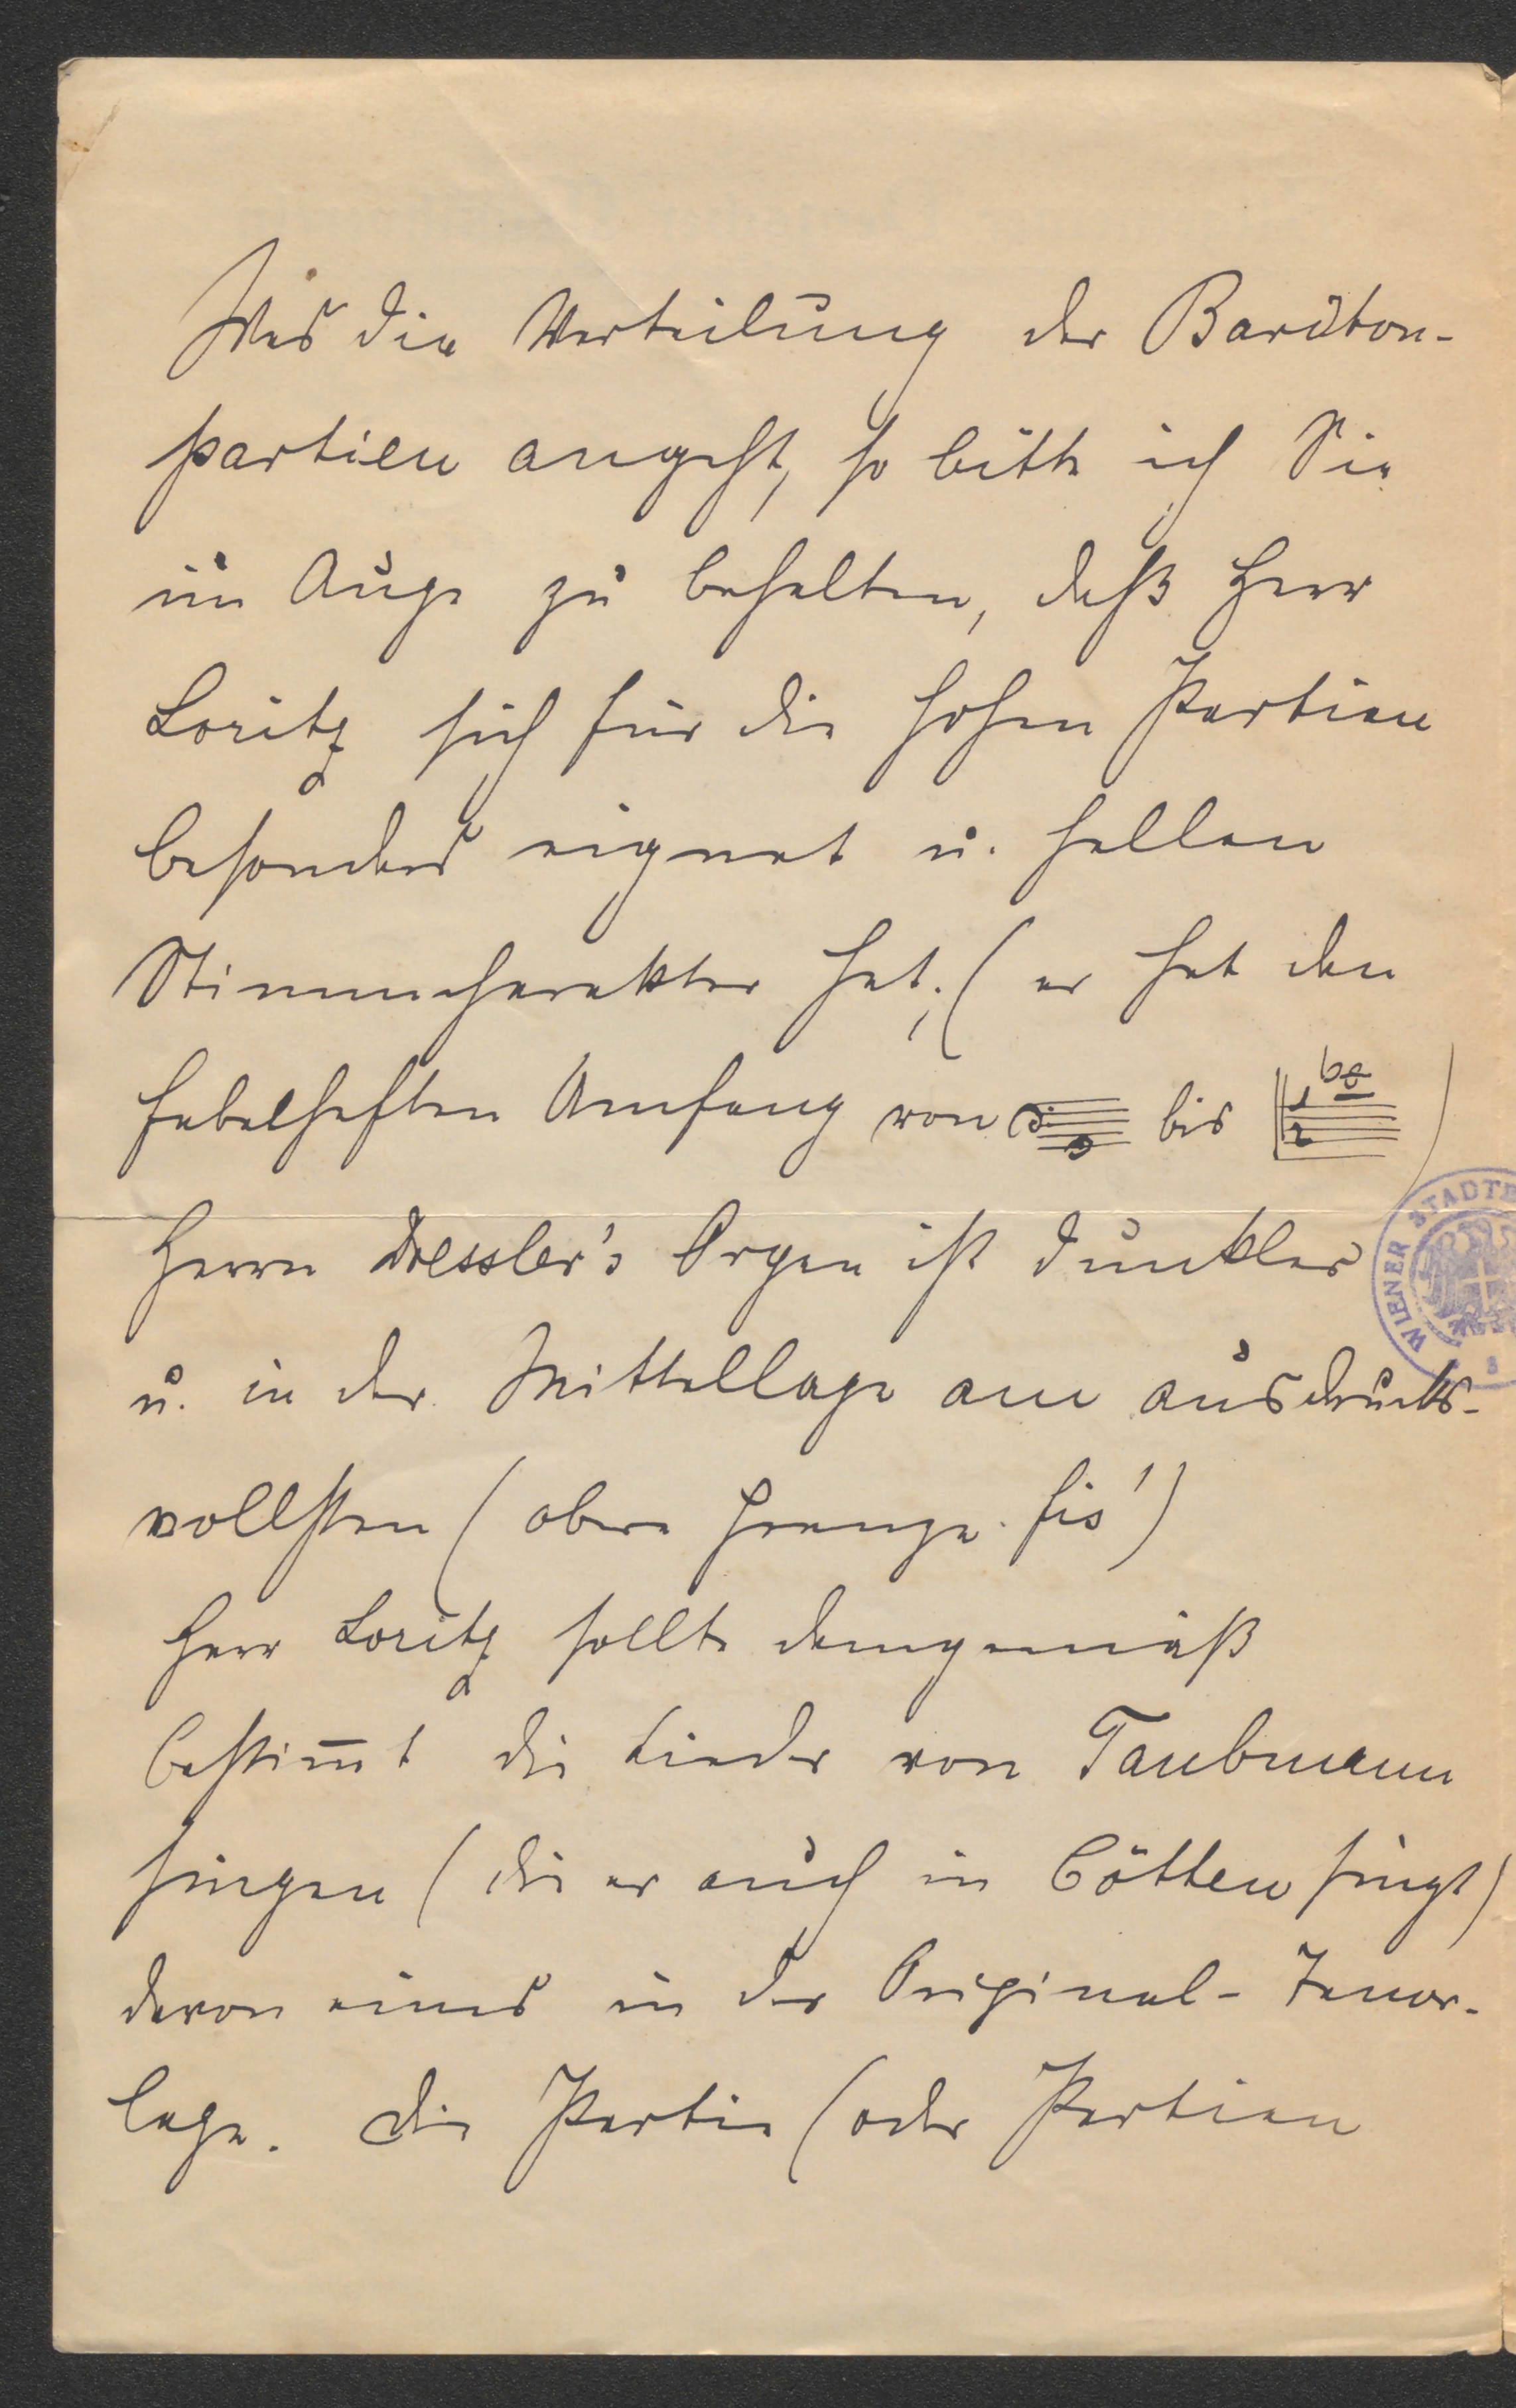 Was die Verteilung der Bariton-
partien angeht, so bitte ich Sie
im Auge zu behalten, daß Herr
Loritz sich für die hohen Partien
besonders eignet u. hellen
Stimmcharakter hat; (er hat den
fabelhaften Umfang von bis )
Herrn Dressler's Organ ist dunkler
u. in der Mittellage am ausdrucks-
vollsten (obere Grenze fis')
Herr Loritz sollte demgemäß
bestim̅t die Lieder von Taubmann
singen (die er auch in Cöthen singt)
davon eines in der Original-Tenor-
lage. Die Partie (oder Partien
WIENER STADTB